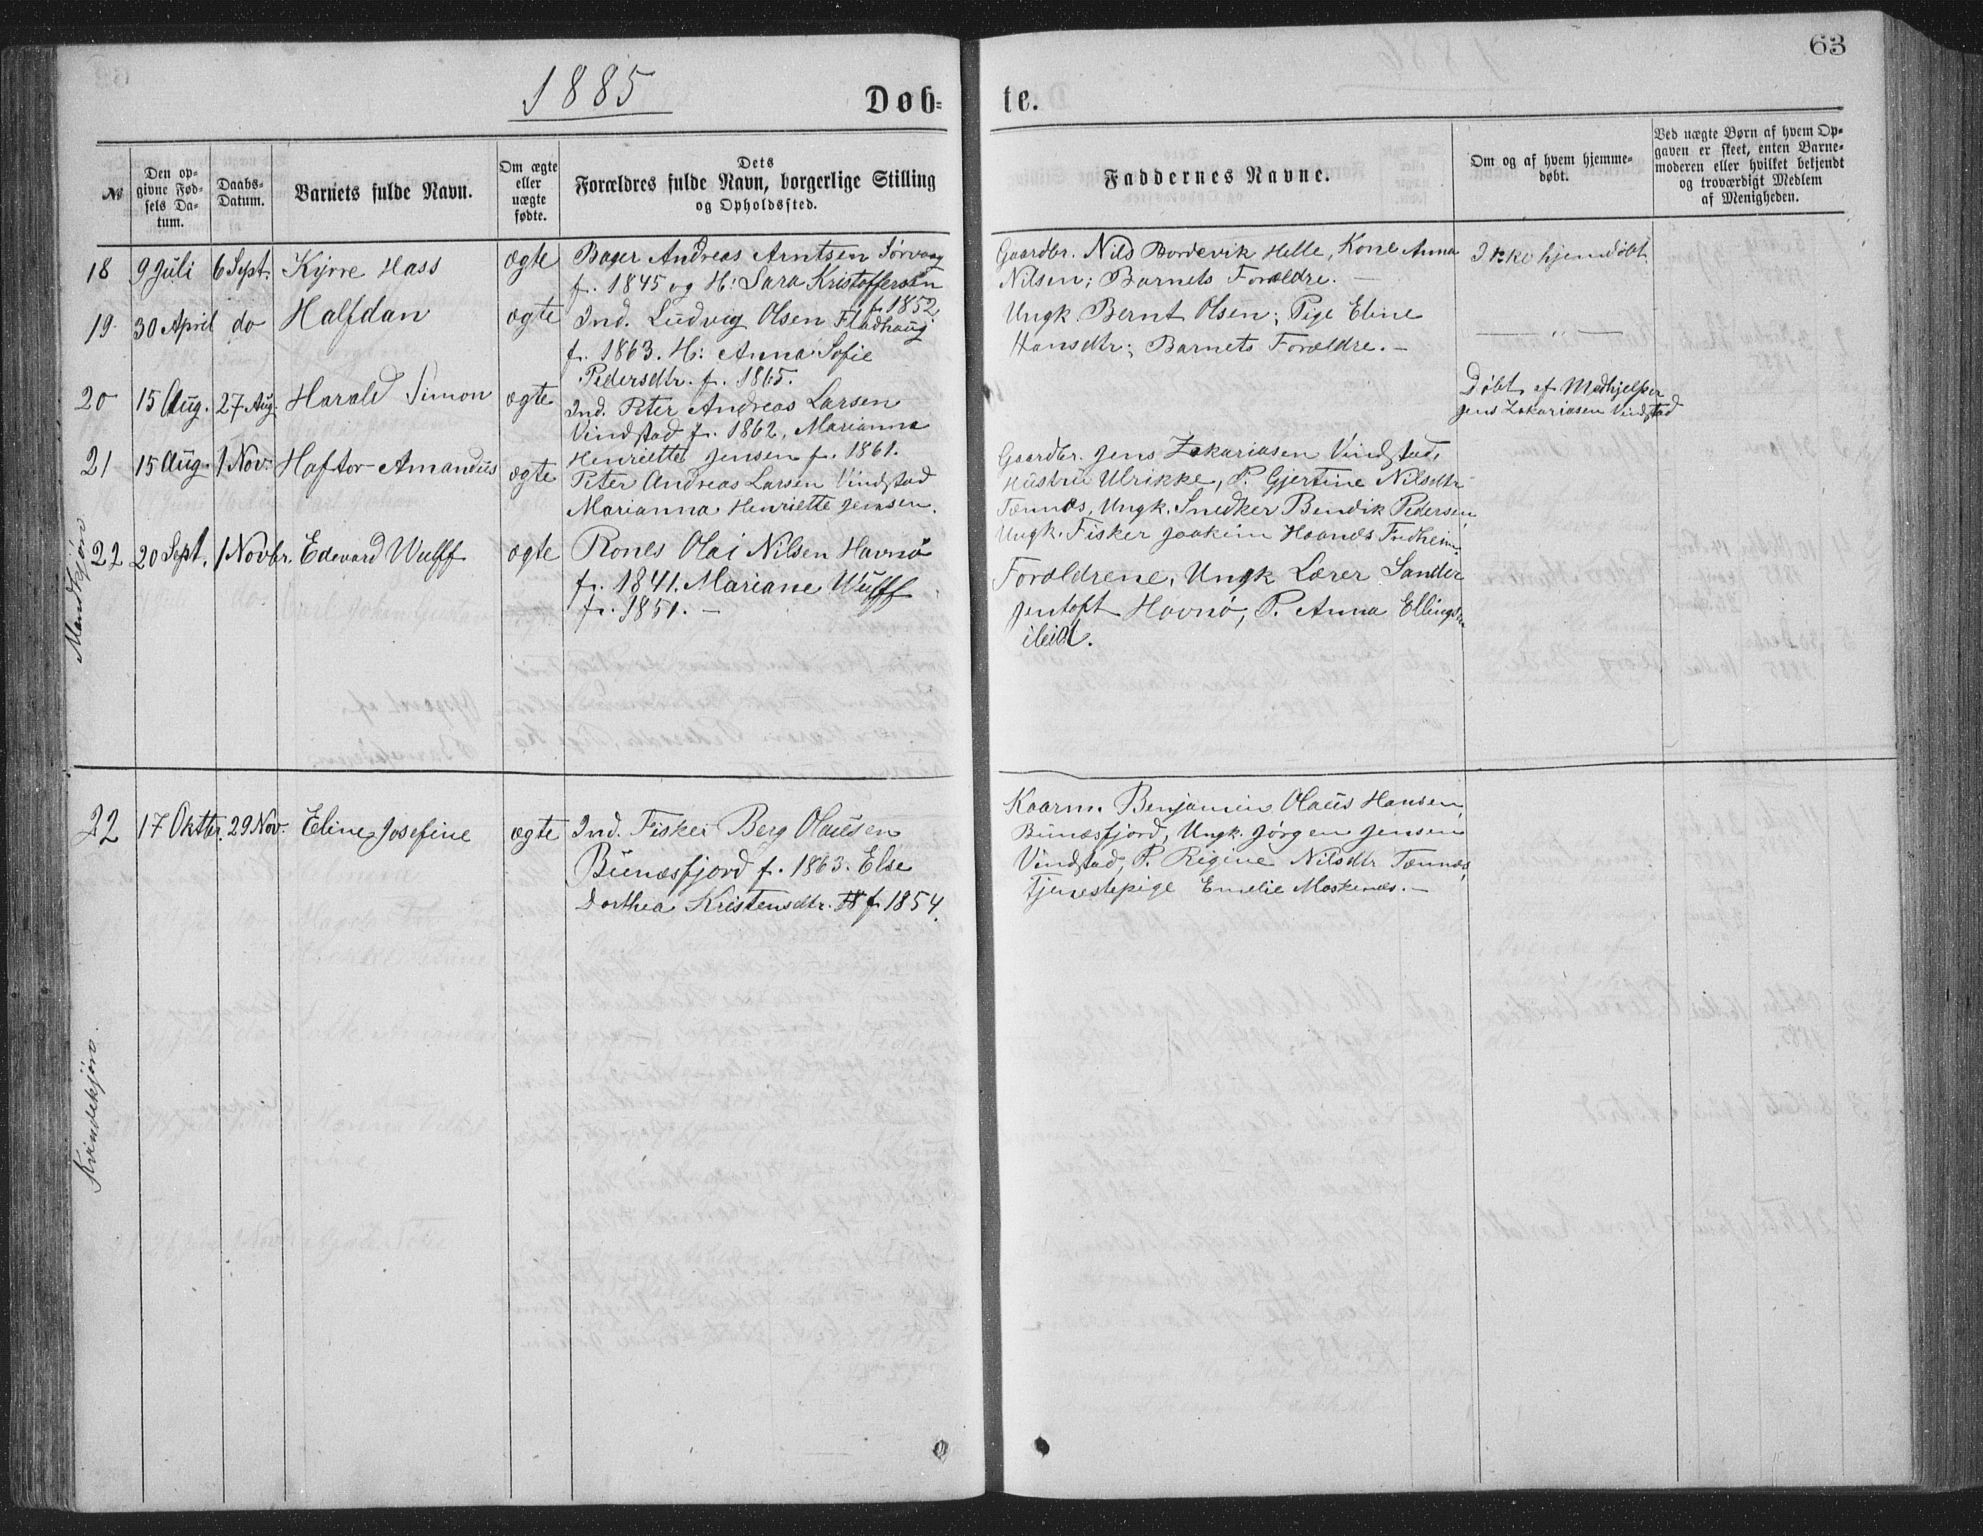 1885
63
Døb=
te.
№
Den op-
givne Fød-
sels Da-
tum.
Daabs-
Datum.
Barnets fulde Navn.
Om ægte
eller
uægte
fødte.
Dets
Forældres fulde Navn, borgerlige Stilling
og Opholdssted.
Faddernes Navne.
Om og af hvem hjemme-
døbt.
Ved uægte Børn af hvem Op-
gaven er skeet, enten Barne-
moderen eller hvilket bekjendt
og troværdigt Medlem
af Menigheden.
Mandkjøn
18 9 Juli 6 Sept. Kyrre Hass ægte
Bager Andreas Arntsen Sørvaag
f. 1845 og H: Sara Kristoffersen
f. 1852.
Gaardbr. Nils Bordevik Helle, Kone Anna
Nilsen; Barnets Forældre. —
Ikke hjemdøbt
19. 30 April do Halfdan ægte
Ind. Ludvig Olsen Fladhaug
f. 1863. H: Anna Sofie
Pedersdtr. f. 1865.
Ungk. Bernt Olsen; Pige Eline
Hansdtr; Barnets Forældre. —
— " —
20 15 Aug. 27 Aug. Harald Simon ægte
Ind. Peter Andreas Larsen
Vindstad f. 1862, Marianna
Henriette Jensen f. 1861.
Døbt af Medhjelper
Jens Zakariasen Vindstad
21 15 Aug. 1 Nov. Haftor Amandus ægte
Peter Andreas Larsen Vindstad
Marianna Henriette Jensen.
Gaardbr. Jens Zakariasen Vindstad,
Hustru Ulrikke, P. Gjertine Nilsdtr
Tennes, Ungk. Snedker Bendik Pedersen
Ungk. Fisker Joakim Hannes
22 20 Sept. 1 Novbr. Edevard Wulff ægte
Rones Olai Nilsen Havnø
f. 1841. Mariane Wulff
f. 1851. —
Forældrene, Ungk Lærer Sander
Jentoft Havnø, P. Anna Ellingsdtr
ibid.
Kvindekjøn.
22 17 Oktbr. 29 Nov. Eline Josefine ægte
Ind. Fisker Berg Olausen
Bunæsfjord f. 1863. Else
Dorthea Kristensdtr. f. 1854.
Kaarm. Benjamin Olaus Hansen,
Bunæsfjord, Ungk. Jørgen Jensen
Vindstad, P. Regine Nilsdtr Tennes,
Tjenestepige Emelie Moskenæs. —